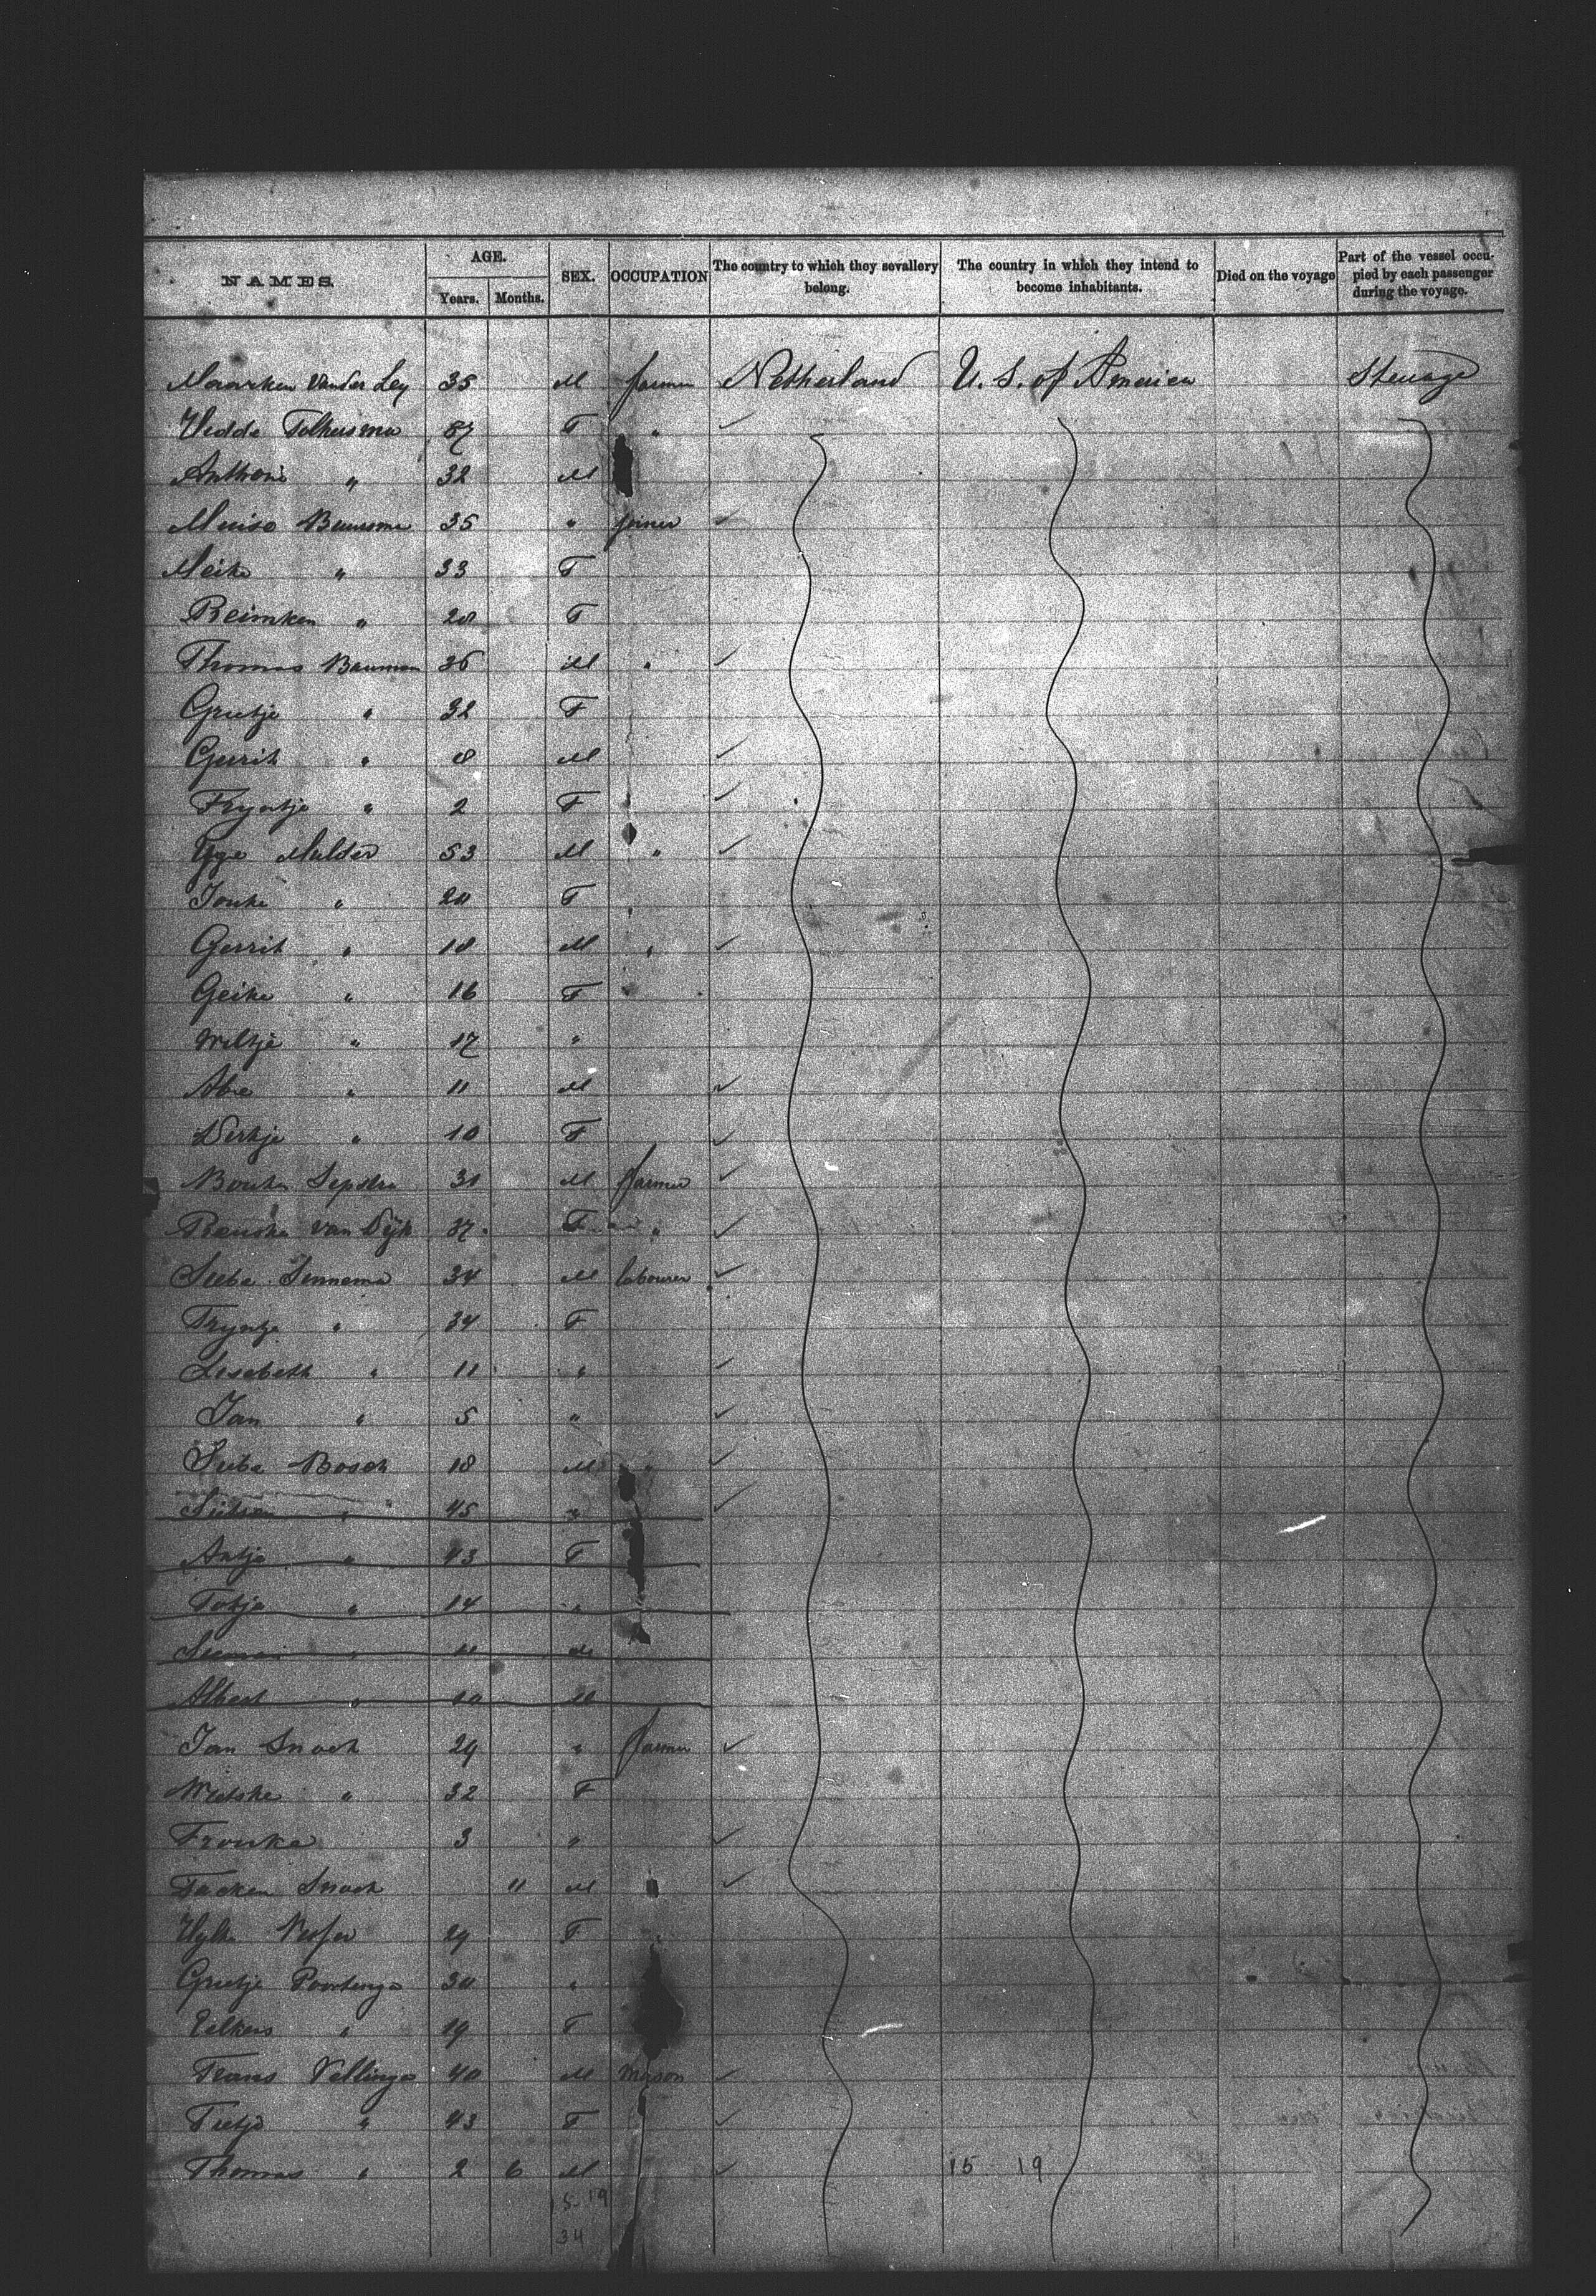 NAMES. AGE. SEX. OCCUPATION The country to which they sevallery belong. The country in which they intend to become inhabitants. Died on the voyage Part of the vessel occupied by each passenger during the voyage.
Years. Months.
Maarken Vander Ley 35 M farmer Netherland U. S. of America Steerage
Wedde Tolhusma F "
Anthoni " 32 M
Meiso Bauusma 35 " joiner
Meike " 33 F
Reimken " 28 F
Thomas Bauman 36 M "
Grietje " 32 F
Gerrit " 8 M
Tryntje " 2 F
Ype Mulder 53 M "
Jouke " 20 F
Gerrit " 18 M "
Geike " 16 F
Wiltje " 17 "
Abe " 11 M
Derkje " 10 F
Bouke Sepstra 31 M farmer
Renske van Dyk 37 F "
Seebe Sennema 34 M labourer
Tryntje " 34 F
Lisebeth " 11 "
Jan " 5 "
Siebe Bosch 18 M "
" 45 "
Antje " 43 F
Totje " 14 "
" M
Albert " 10 M
Jan Snoek 29 " farmer
Wietske " 32 F
Frouke 3 "
Tacken Snoek 11 M
Hylke 29 F
Grietje Poortenga 30 "
Eelkers " 19 F
Frans Vellinga 40 M Mason
Tietje " 43 F
Thomas " 2 6 M 15 19
15-19
34